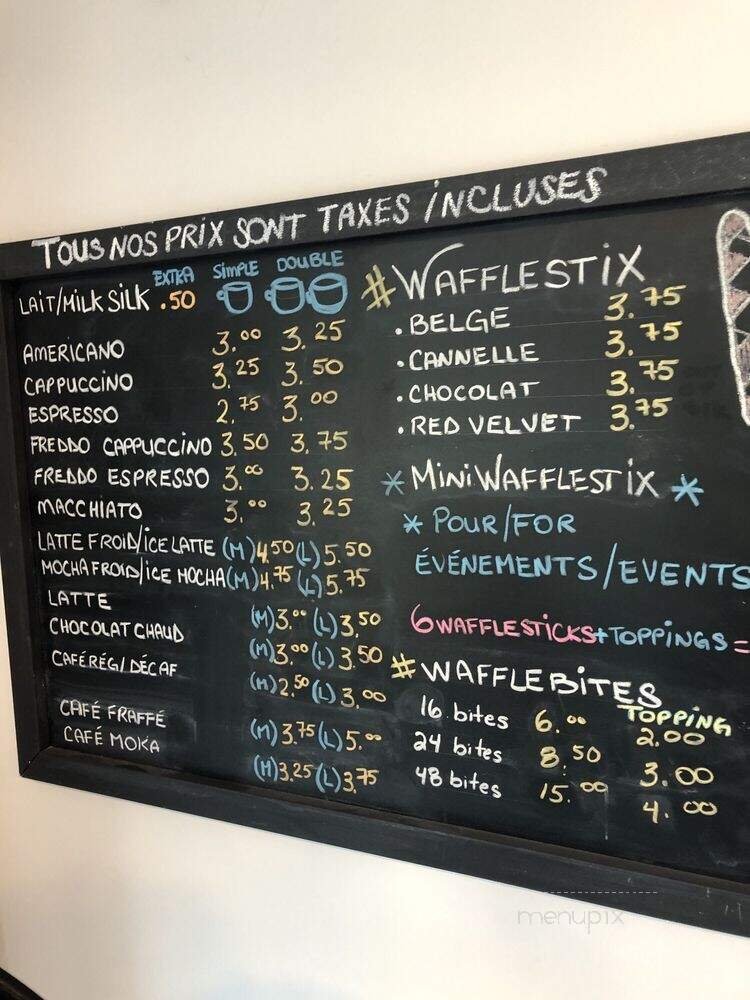 TOUS NOS PRIX SONT TAXES INCLUSES
EXTRA SIMPLE DOUBLE
LAIT/MILK SILK .50
AMERICANO 3.00 3.25
CAPPUCCINO 3.25 3.50
ESPRESSO 2.75 3.00
FREDDO CAPPUCCINO 3.50 3.75
FREDDO ESPRESSO 3.00 3.25
MACCHIATO 3.00 3.25
LATTE FROID/ICE LATTE (M) 4.50 (L) 5.50
MOCHA FROID/ICE MOCHA (M) 4.75 (L) 5.75
LATTE (M) 3.00 (L) 3.50
CHOCOLAT CHAUD (M) 3.00 (L) 3.50
CAFÉ RÉG/DÉCAF (M) 2.50 (L) 3.00
CAFÉ FRAFFÉ (M) 3.75 (L) 5.00
CAFÉ MOKA (M) 3.25 (L) 3.75
#WAFFLESTIX
. BELGE 3.75
. CANNELLE 3.75
. CHOCOLAT 3.75
. RED VELVET 3.75
* MINI WAFFLESTIX *
* POUR/FOR
ÉVÉNEMENTS/EVENTS
6 WAFFLESTICKS + TOPPINGS =
#WAFFLEBITES
TOPPING
16 bites 6.00 2.00
24 bites 8.50 3.00
48 bites 15.00 4.00
menupix